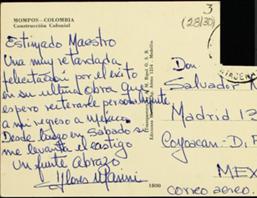 MOMPOS - COLOMBIA
Construcción Colonial
3
(28/30)
Estimado Maestro
Una muy retardada
felicitación por el éxito
en su ultima obra que
espero reiterarle personalmente
a mi regreso a Mexico.
Desde luego en Sabado se
me levanta el castigo
Un fuerte Abrazo
Flores
1800
Don
Salvador
Madrid 13
Coyoacan - D.
MEX
correo aereo.